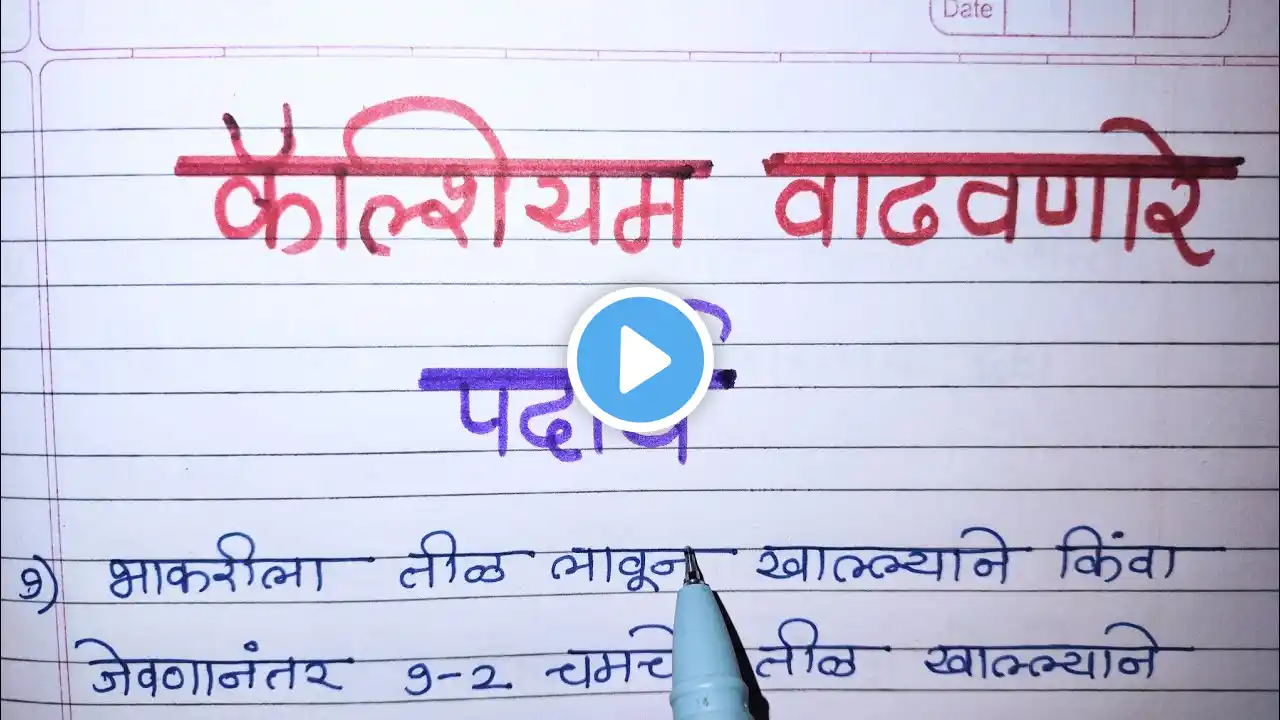 Date
कॅल्शियम वाढवणारे
पदार्थ
१) भाकरीला तीळ लावून खाल्ल्याने किंवा
जेवणानंतर १-२ चमचे तीळ खाल्ल्याने